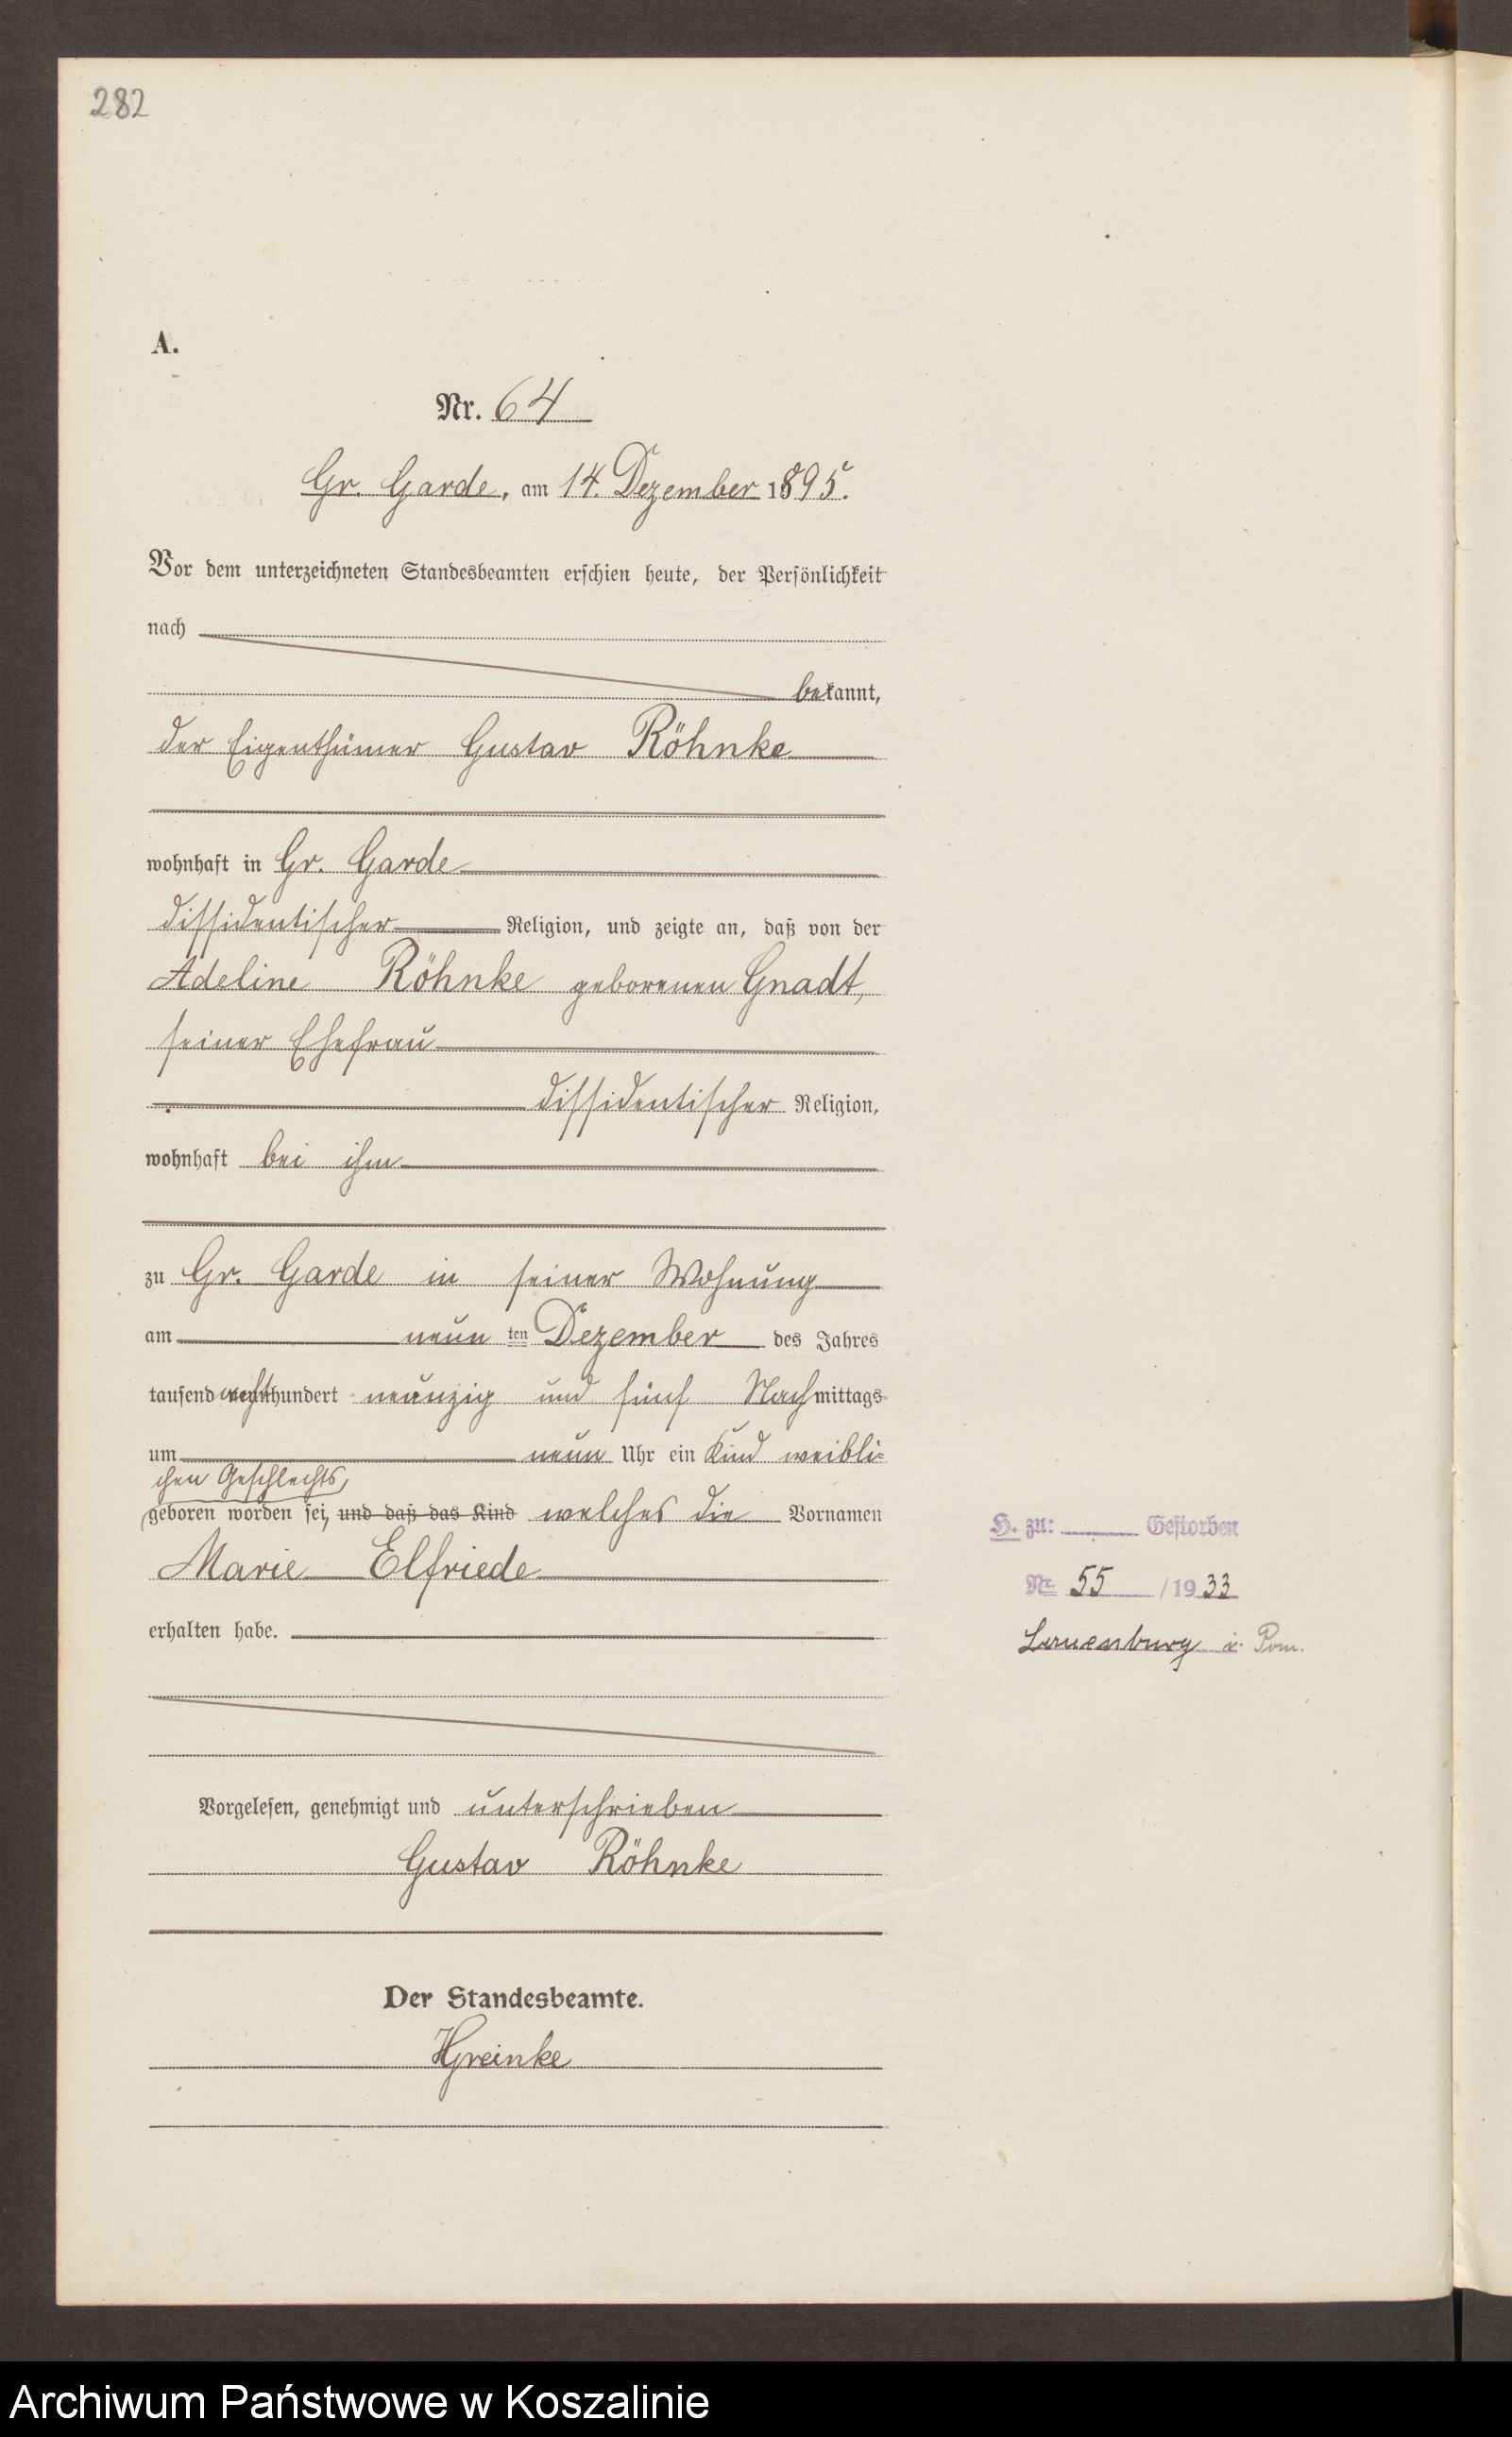 282
A.
Nr. 64
Gr. Garde, am 14. Dezember 1895.
Vor dem unterzeichneten Standesbeamten erschien heute, der Persönlichkeit
nach
bekannt,
der Eigenthümer Gustav Röhnke
wohnhaft in Gr. Garde
dissidentischer Religion, und zeigte an, daß von der
Adeline Röhnke geborenen Gnadt,
seiner Ehefrau
dissidentischer Religion,
wohnhaft bei ihm
zu Gr. Garde in seiner Wohnung
am neun ten Dezember des Jahres
tausend achthundert neunzig und fünf Nachmittags
um neun Uhr ein Kind weibli-
chen Geschlechts,
geboren worden sei, und daß das Kind welches die Vornamen
Marie Elfriede
erhalten habe.
Vorgelesen, genehmigt und unterschrieben
Gustav Röhnke
Der Standesbeamte.
HGreinke
H. zu: Gestorben
Nr. 55 /1933
Lauenburg i. Pom.
Archiwum Państwowe w Koszalinie